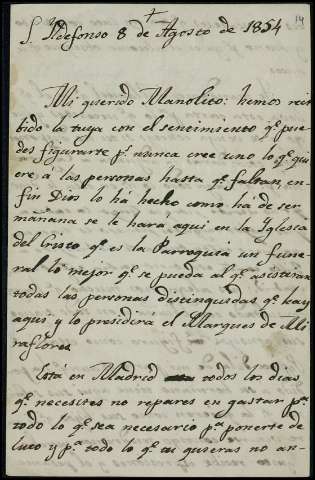 14
+
S. Ildefonso 8 de Agosto de 1854
Mi querido Manolito: hemos reci
bido la tuya con el sentimiento qe. pue
des figurarte pr. nunca cree uno lo qe. qui
ere á las personas hasta qe. faltan, en
fin Dios lo há hecho como ha de ser
mañana se le hará aqui en la Yglesia
del Cristo qe. es la Parroquia un fune
ral lo mejor qe. se pueda al qe. asistiran
todas las personas distinguidas qe. hay
aqui y lo presidirá el Marques de Mi
raflores
Está en Madrid todos los dias
qe. necesites no repares en gastar pa.
todo lo qe. sea necesario pa. ponerte de
luto y pa. todo lo qe. tu quieras no an-